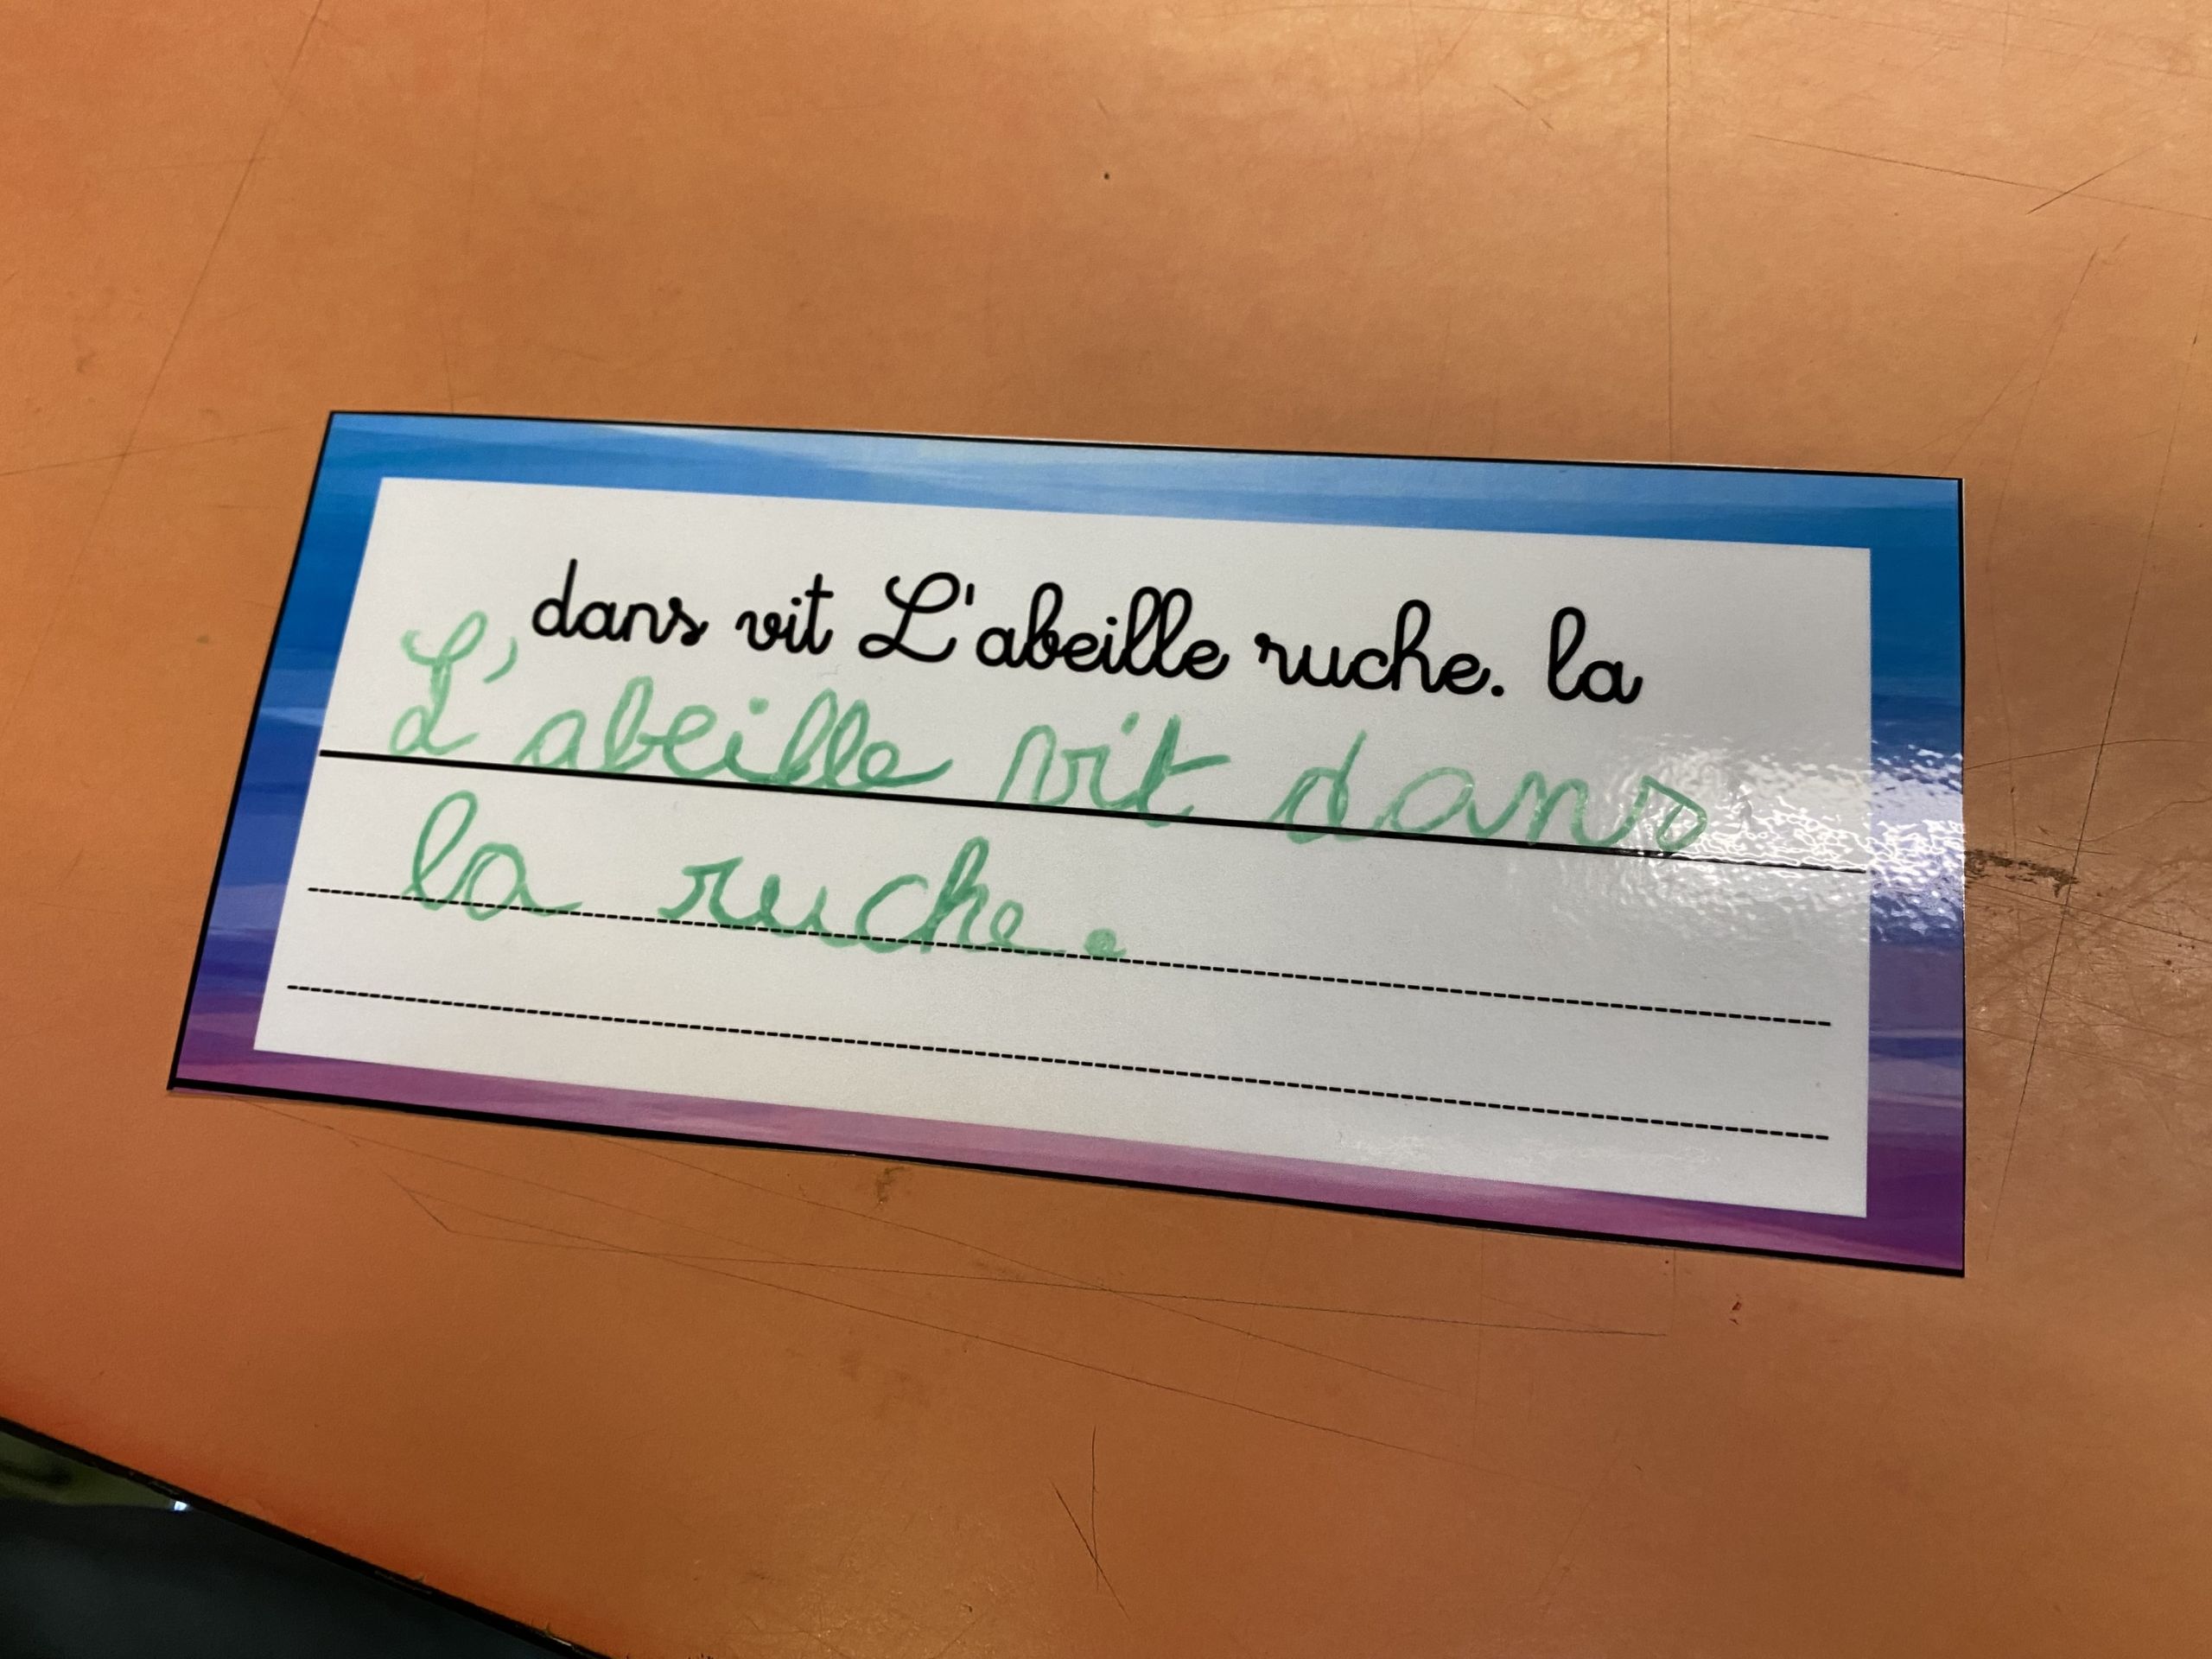 dans vit L'abeille ruche. la
L'abeille vit dans
la ruche.